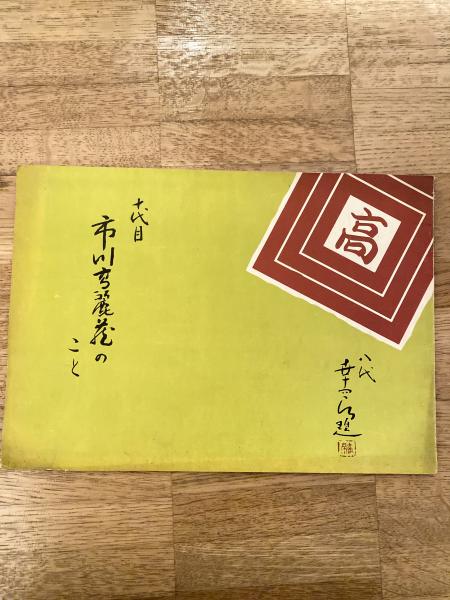 高
八代
幸四郎題
十代目
市川高麗蔵の
こと